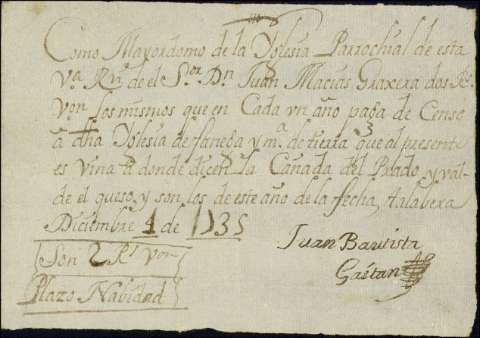 Como Mayordomo de la Yglesia Parrochial de esta
Vª Rvi de el Sor Dn Juan Macias Graxera dos Rs
Von los mismos que en Cada un año paga de Censo
à dha Yglesia de fanega y mª de tierra que al presente
es viña a donde dicen la Cañada del Prado, y val-
de el queso, y son los de este año de la fecha, Talabera
Diciembre 1 de 1735
Son 2 Rs Von
Plazo Nabidad
Juan Bautista
Gaitan